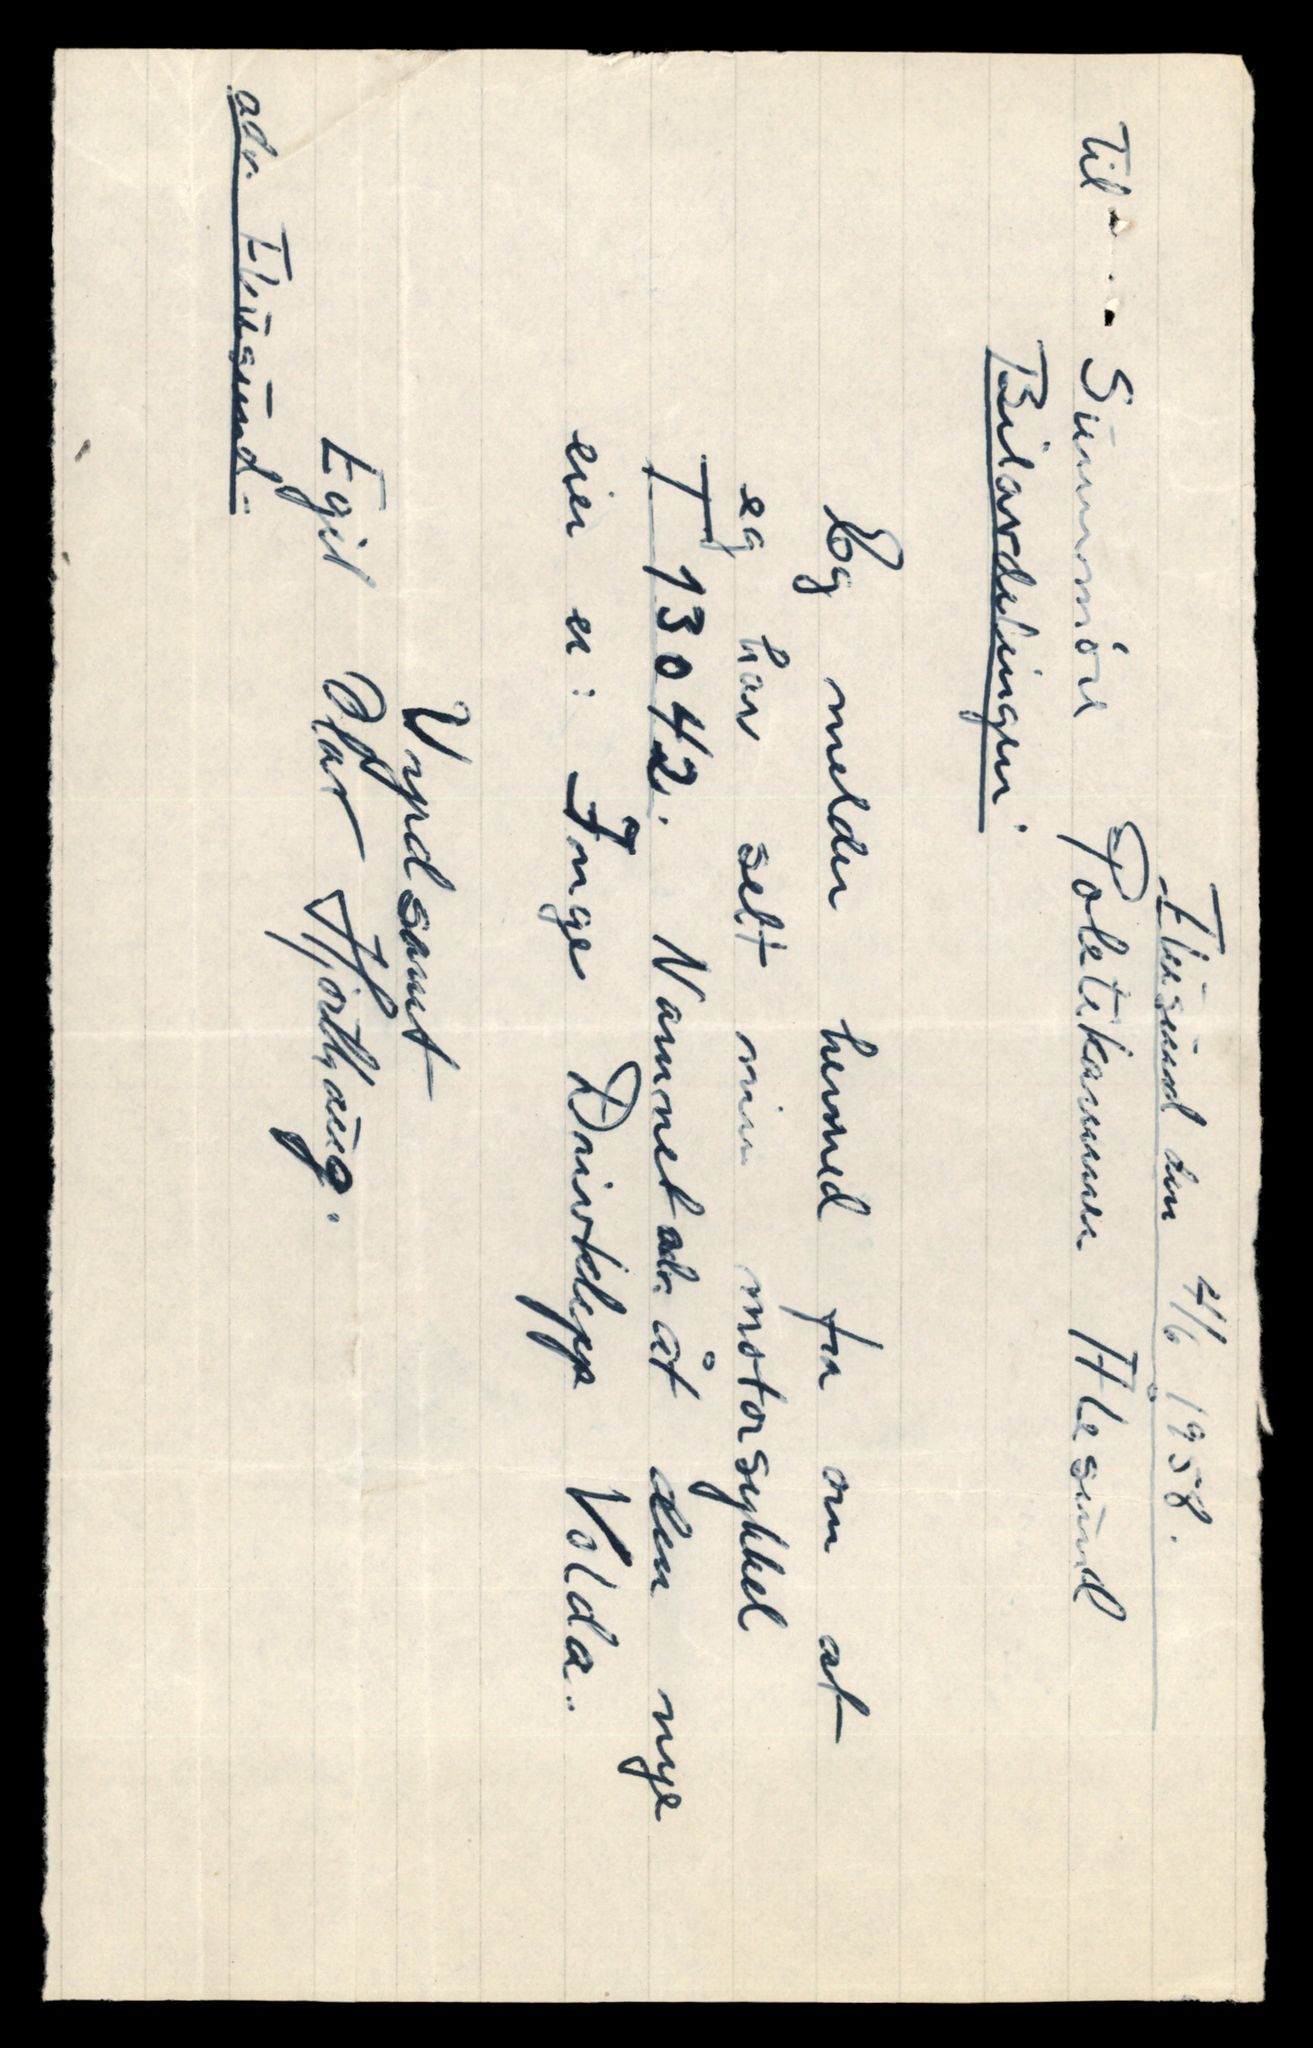 Fløusund den 4/6 1958.
Til Sunnmöre Poletikammer Ålesund
Bilavdelingen.
Eg melder hermed fra om at
eg har selt min motorsykkel
T 13042. Namnet adr. åt den nye
eier er: Inge Driveklepp Volda.
Vyrdsamt
Egil Olav Hjorthaug.
adr. Fløusund.